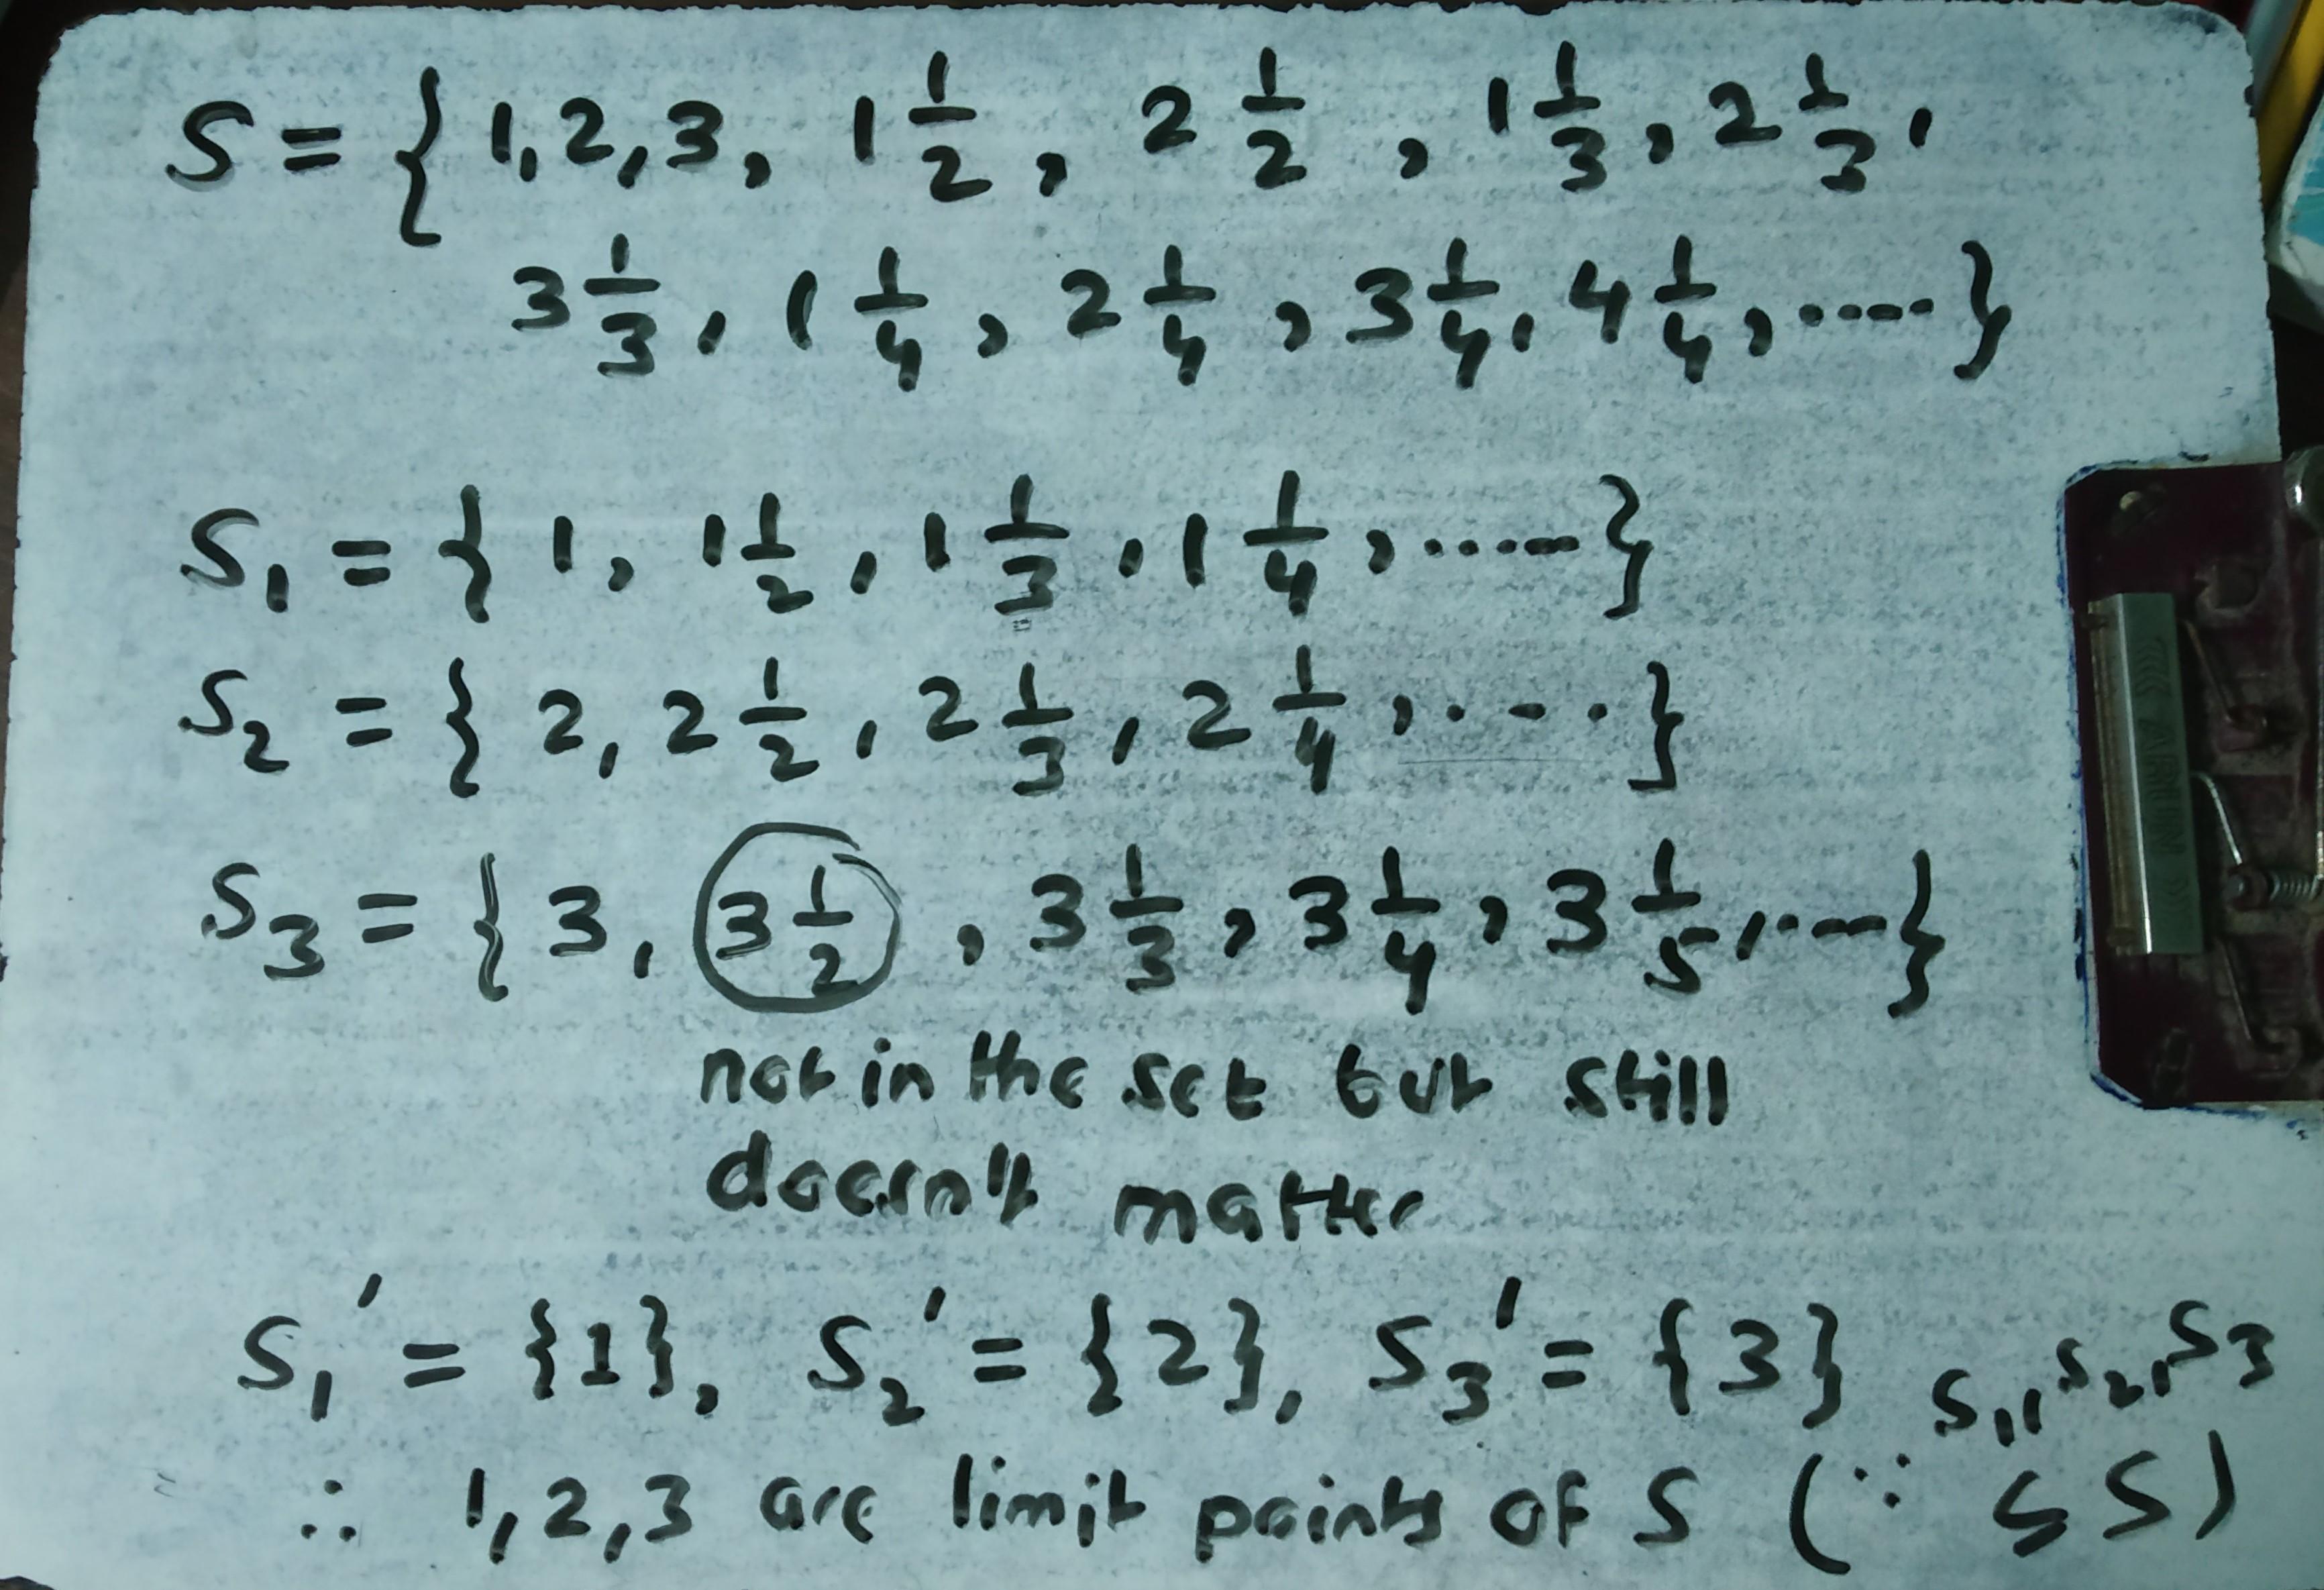 S = { 1, 2, 3, 1 1/2, 2 1/2, 1 1/3, 2 1/3,
3 1/3, 1 1/4, 2 1/4, 3 1/4, 4 1/4, ..... }
S₁ = { 1, 1 1/2, 1 1/3, 1 1/4, ..... }
S₂ = { 2, 2 1/2, 2 1/3, 2 1/4, .... }
S₃ = { 3, 3 1/2, 3 1/3, 3 1/4, 3 1/5, .... }
not in the set but still
doesn't matter
S₁' = {1}, S₂' = {2}, S₃' = {3} S₁, S₂, S₃
∴ 1, 2, 3 are limit points of S (∵ ⊆ S)